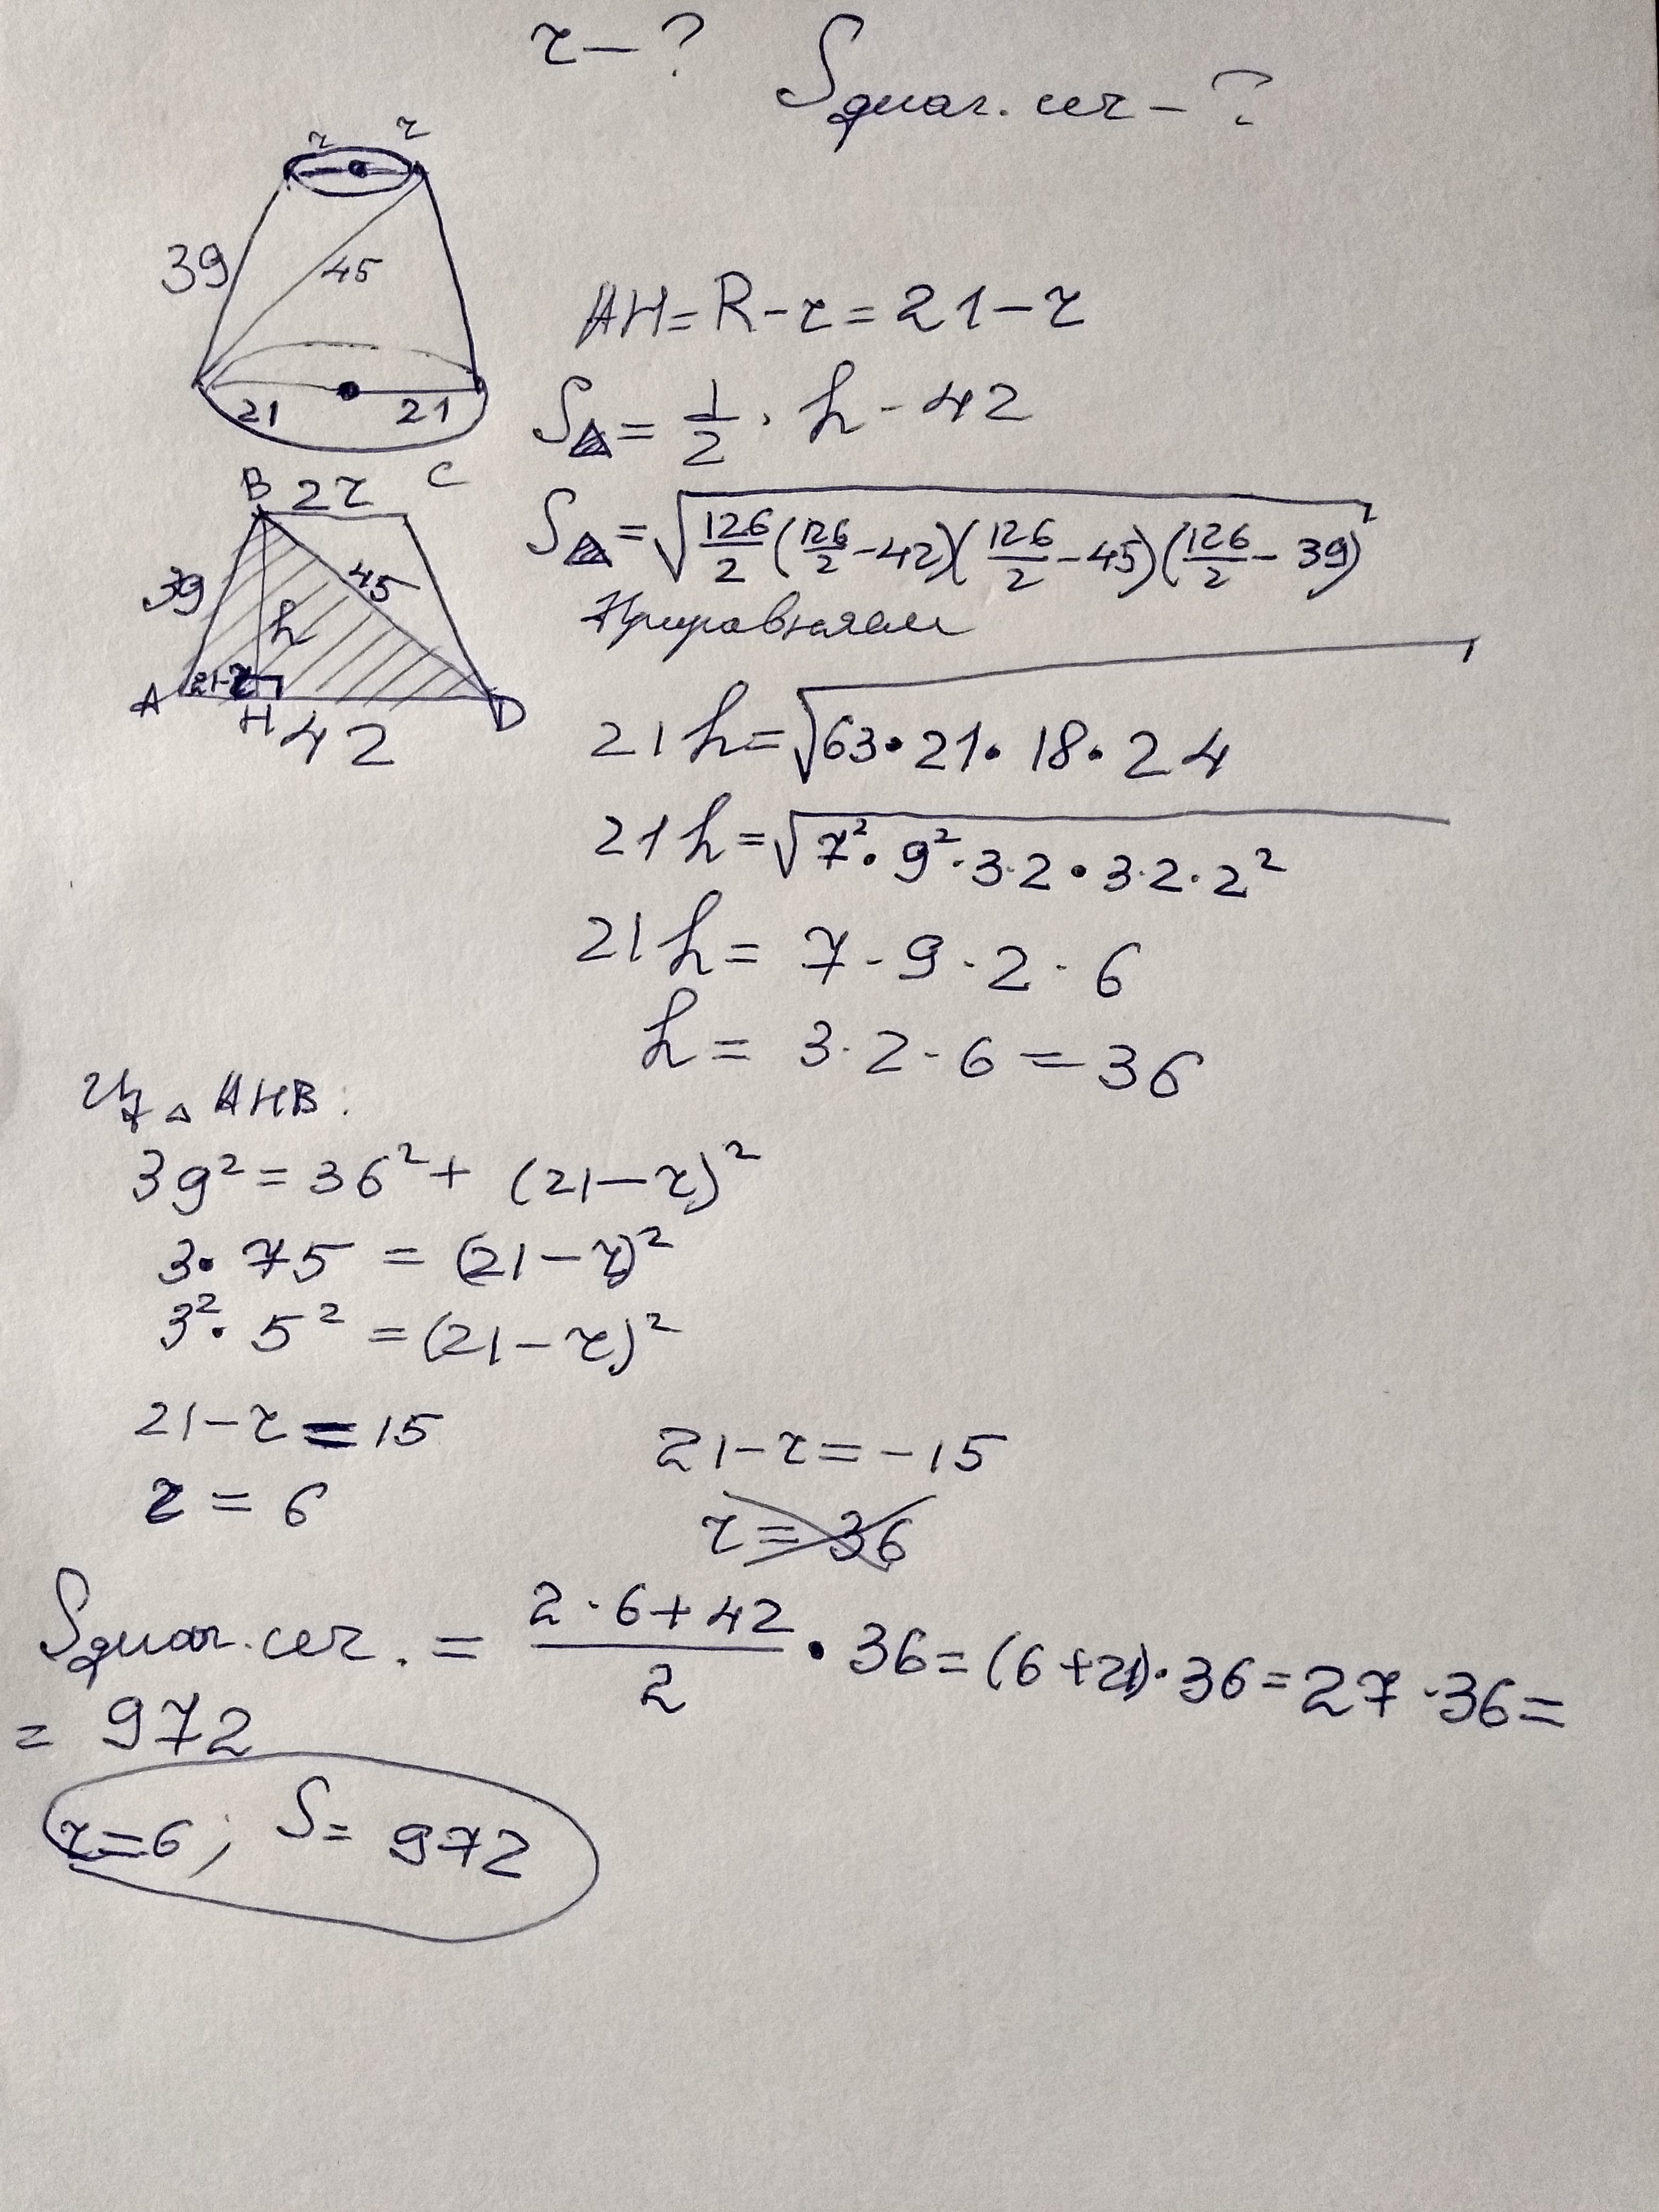 r - ? S диаг. сеч - ?
r r
39 45
21 21
AH = R - r = 21 - r
S△ = 1/2 · h · 42
B 2r C
39 45
h
21-r
A H 42 D
S△ = √(126/2 (126/2 - 42)(126/2 - 45)(126/2 - 39))
Приравняем
21h = √(63 · 21 · 18 · 24)
21h = √(7² · 9² · 3 · 2 · 3 · 2 · 2²)
21h = 7 · 9 · 2 · 6
h = 3 · 2 · 6 = 36
Из △ AHB:
39² = 36² + (21 - r)²
3 · 75 = (21 - r)²
3² · 5² = (21 - r)²
21 - r = 15 21 - r = -15
r = 6 r = 36
S диаг. сеч. = (2 · 6 + 42)/2 · 36 = (6 + 21) · 36 = 27 · 36 =
= 972
r = 6; S = 972